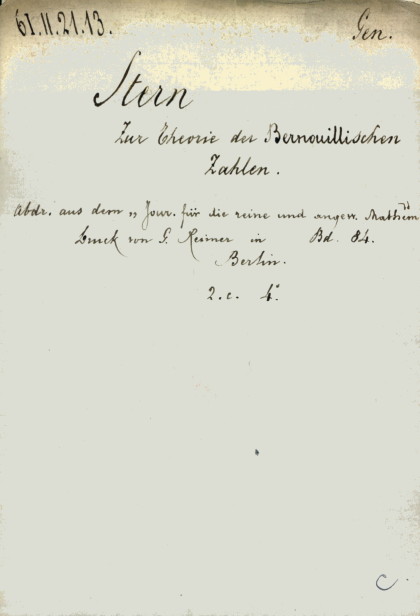 61.II.21.13.
Gen.
Stern
Zur Theorie der Bernouillischen
Zahlen.
Abdr. aus dem „Jour. für die reine und angew. Mathem"
Druck von G. Reimer in Bd. 84.
Berlin.
2. c. 4°.
C.